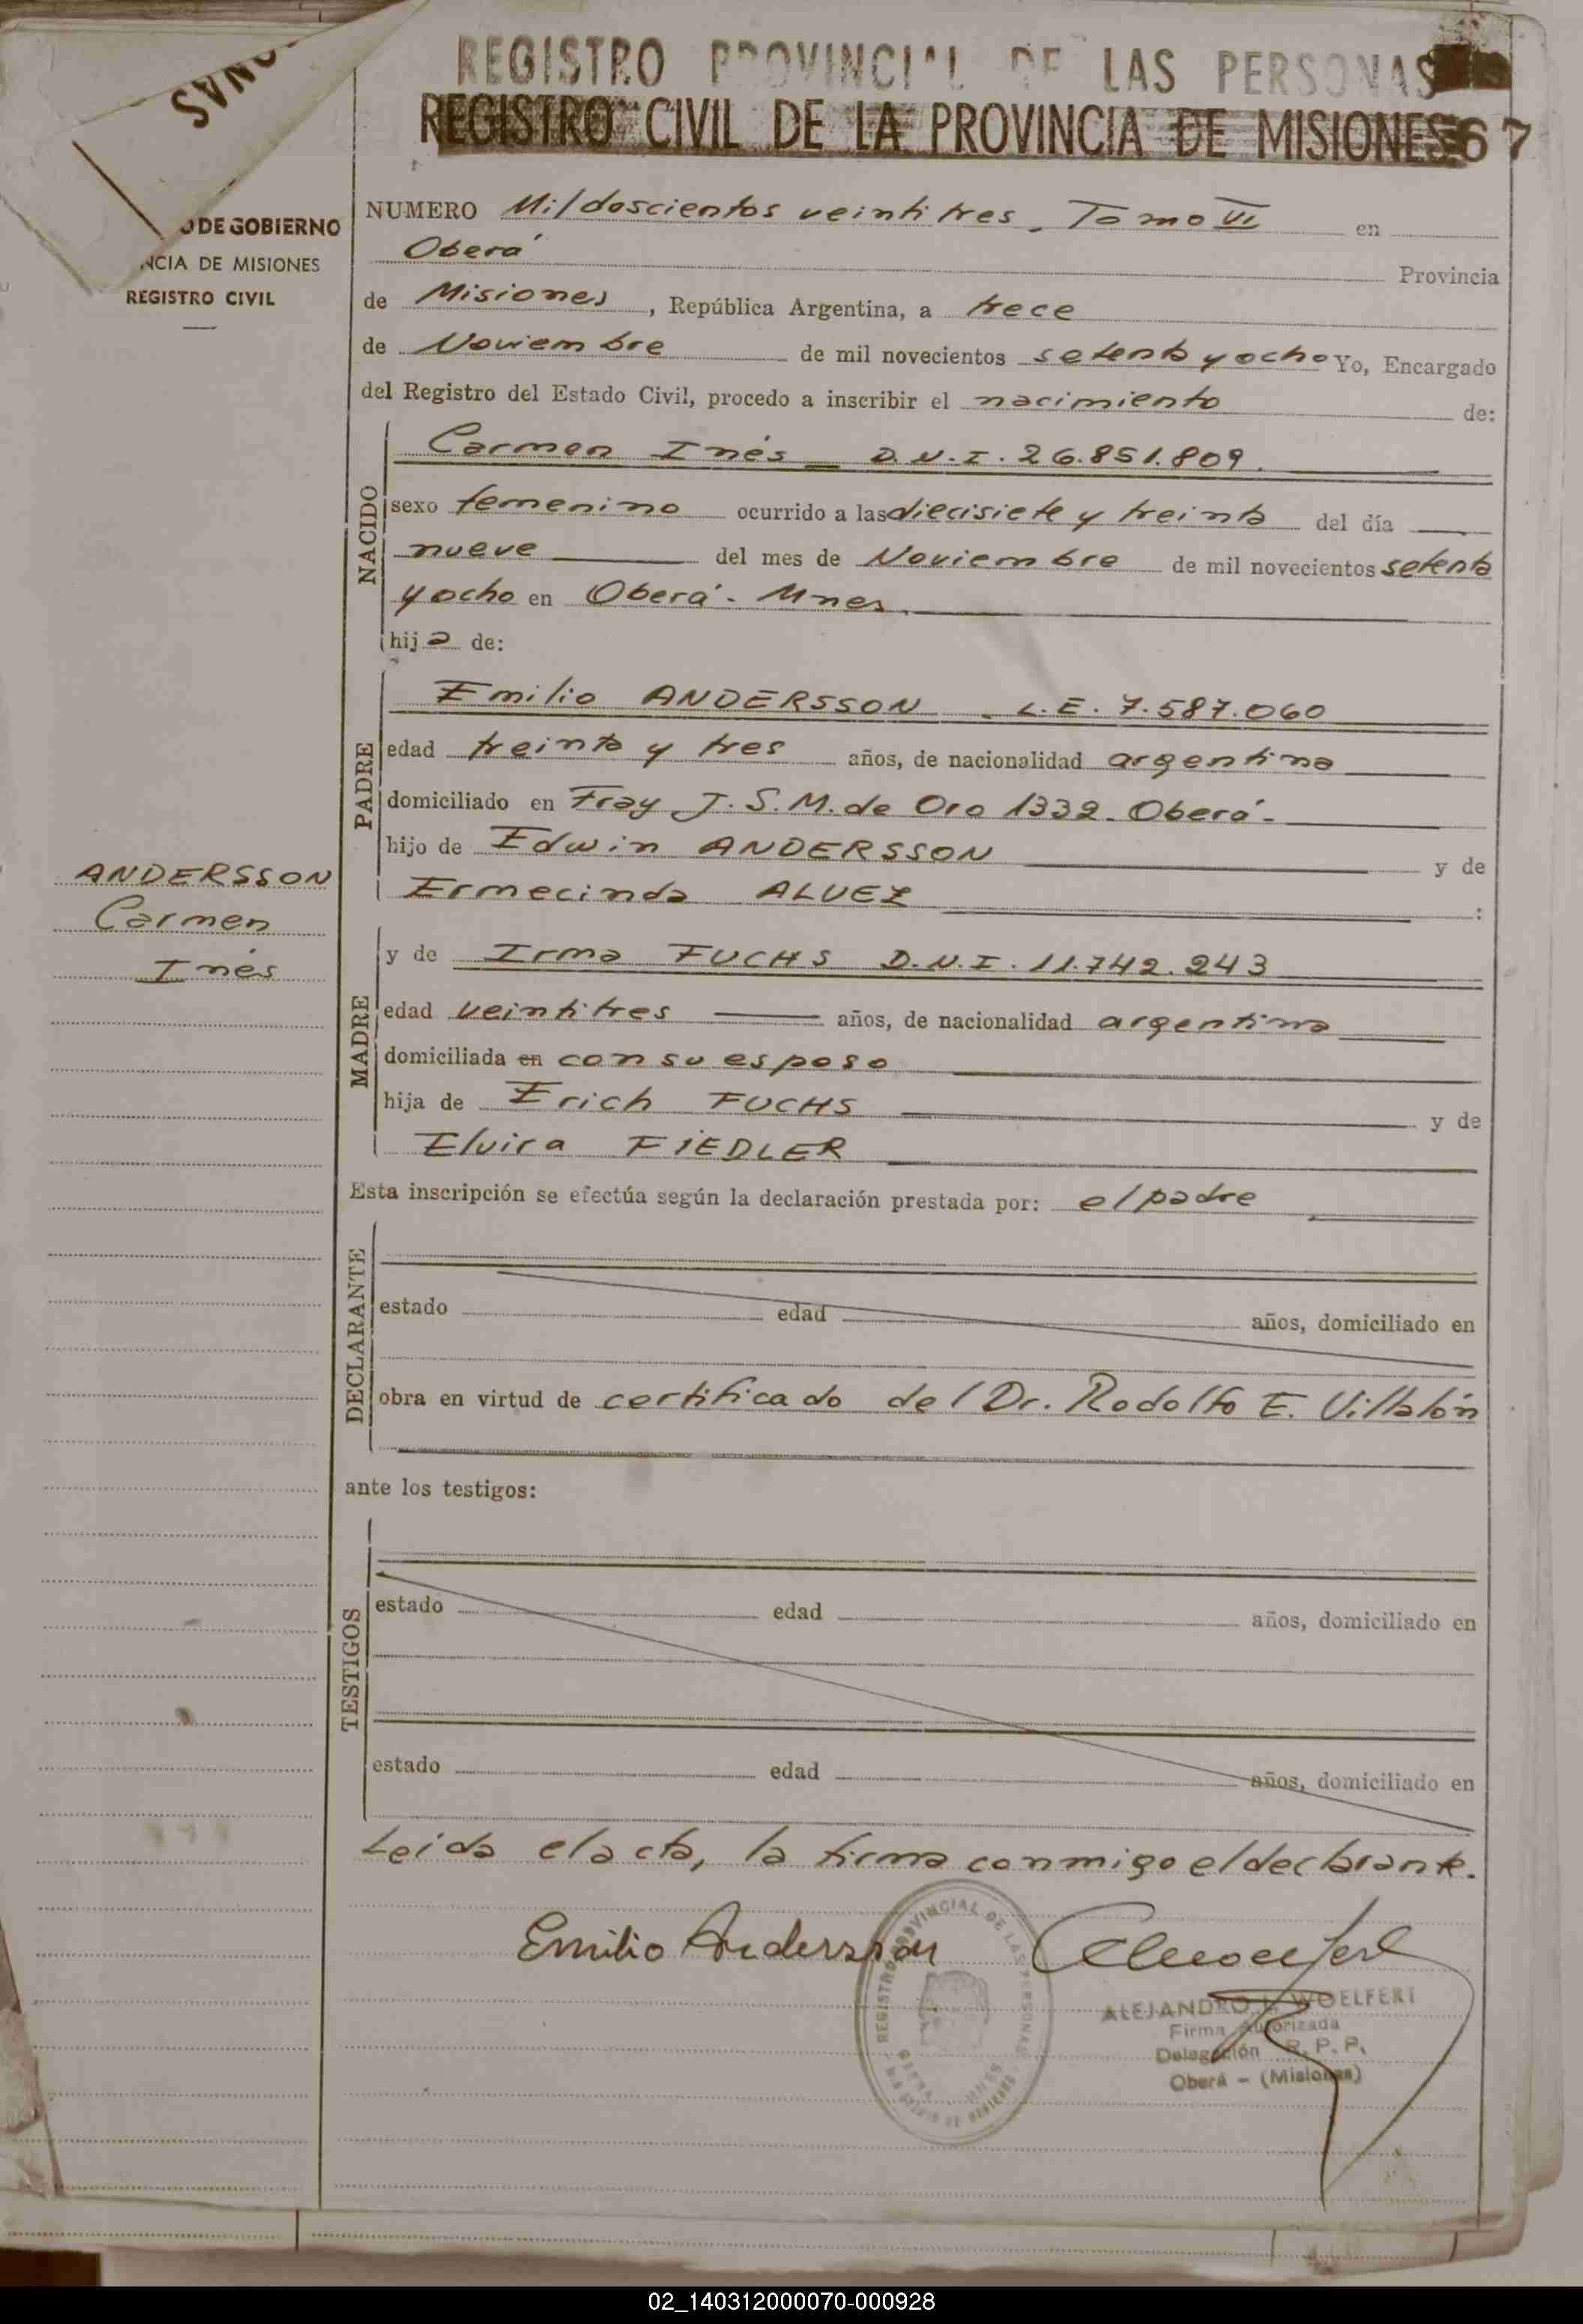 REGISTRO PROVINCIAL DE LAS PERSONAS
REGISTRO CIVIL DE LA PROVINCIA DE MISIONES 67
ONAS
O DE GOBIERNO
NCIA DE MISIONES
REGISTRO CIVIL
NUMERO Mil doscientos veintitres. Tomo VI en
Oberá Provincia
de Misiones, República Argentina, a trece
de Noviembre de mil novecientos setenta y ocho Yo, Encargado
del Registro del Estado Civil, procedo a inscribir el nacimiento de:
NACIDO
Carmen Inés D.N.I. 26.851.809.
sexo femenino ocurrido a las diecisiete y treinta del día
nueve del mes de Noviembre de mil novecientos setenta
y ocho en Oberá - Mnes.
hija de:
PADRE
Emilio ANDERSSON - L.E. 7.587.060
edad treinta y tres años, de nacionalidad argentina
domiciliado en Fray J. S. M. de Oro 1332 - Oberá -
hijo de Edwin ANDERSSON y de
Ermecinda ALVEZ :
ANDERSSON
Carmen
Inés
MADRE
y de Irma FUCHS D.N.I. 11.742.243
edad veintitres años, de nacionalidad argentina
domiciliada en con su esposo
hija de Erich FUCHS y de
Elvira FIEDLER
Esta inscripción se efectúa según la declaración prestada por: el padre
DECLARANTE
estado edad años, domiciliado en
obra en virtud de certificado del Dr. Rodolfo E. Villalón
ante los testigos:
TESTIGOS
estado edad años, domiciliado en
estado edad años, domiciliado en
Leida el acta, la firma conmigo el declarante.
Emilio Andersson
REGISTRO PROVINCIAL DE LAS PERSONAS
OBERA - MNES
ALEJANDRO L. WOELFERT
Firma Autorizada
Delegación R. P. P.
Oberá - (Misiones)
02_140312000070-000928